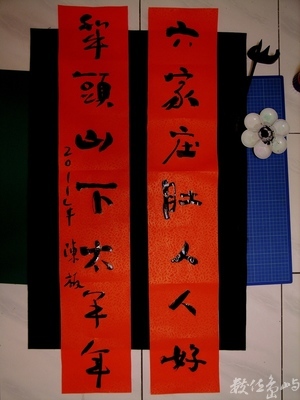 六家庄肚人人好
犂頭山下太平年
2011兔年 陳板
數位島嶼